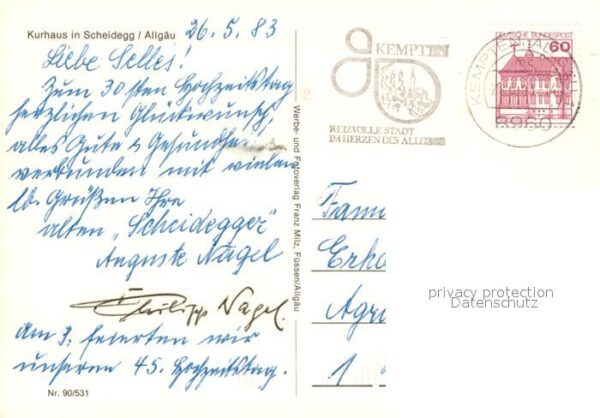 Kurhaus in Scheidegg / Allgäu
26. 5. 83
Liebe Selles!
Zum 30sten Hochzeitstag
herzlichen Glückwunsch,
alles Gute & Gesundhe
verbunden mit vielen
lb. Grüßen Ihre
alten „Scheidegger"
Auguste Nagel
Philipp Nagel.
Am 3. feierten wir
unseren 45. Hochzeitstag.
Nr. 90/531
Werbe- und Fotoverlag Franz Milz, Füssen/Allgäu
KEMPTEN
REIZVOLLE STADT
IM HERZEN DES ALLG
DEUTSCHE BUNDESPOST
60
KEMPTEN (ALLGÄU)
8960
Fami
Erho
Agri
1
privacy protection
Datenschutz